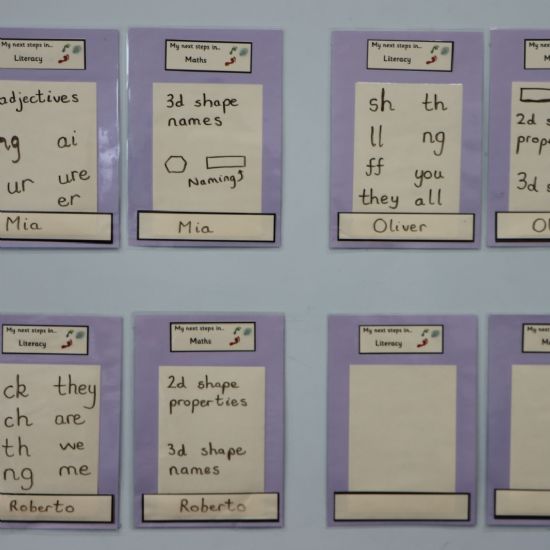 My next steps in..
Literacy
adjectives
ng ai
ur ure
er
Mia
My next steps in..
Maths
3d shape
names
Naming
Mia
My next steps in..
Literacy
sh th
ll ng
ff you
they all
Oliver
2d s
prope
3d s
Ol
My next steps in..
Literacy
ck they
ch are
th we
ng me
Roberto
My next steps in..
Maths
2d shape
properties
3d shape
names
Roberto
My next steps in..
Literacy